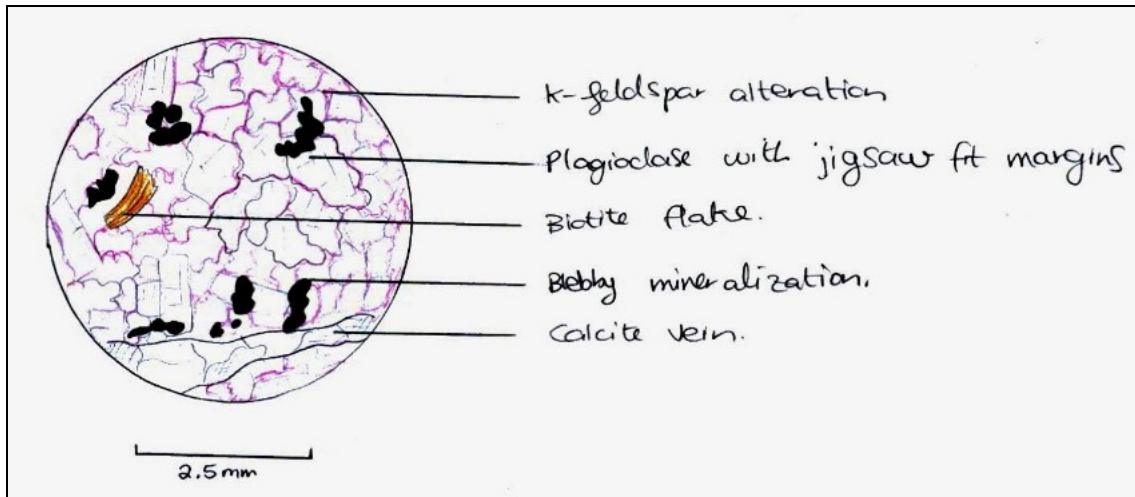 K-feldspar alteration
Plagioclase with jigsaw fit margins
Biotite flake.
Blebby mineralization.
Calcite vein.
2.5mm